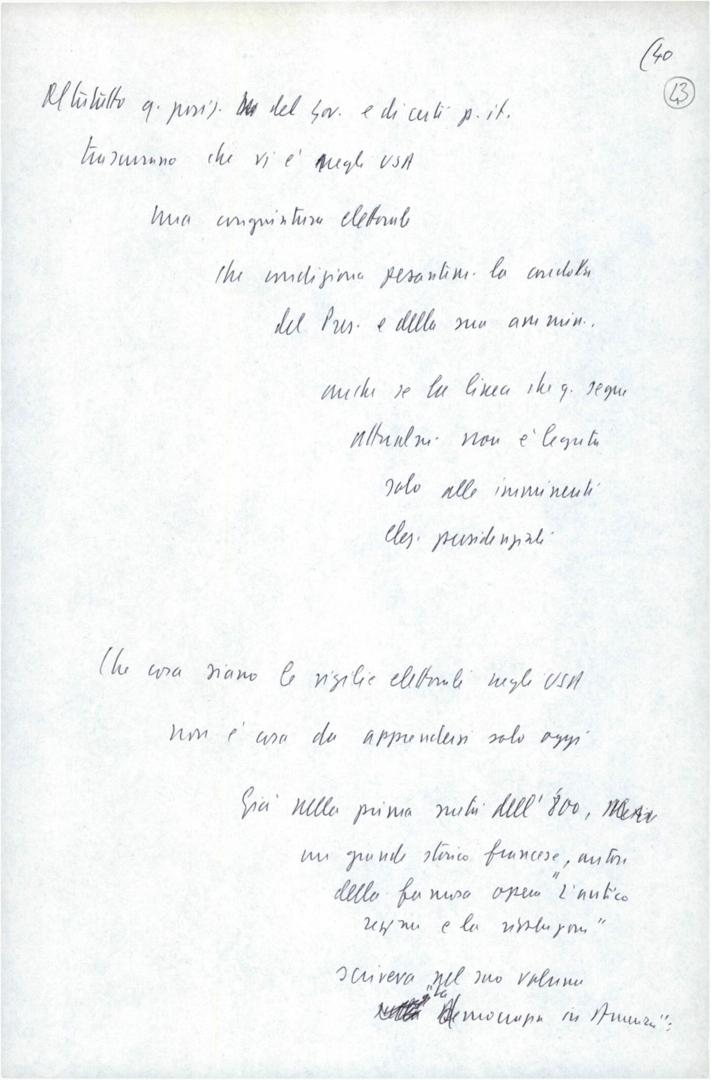 (40
43
Oltututto q. posiz. del Gov. e di certi p. it.
trascurano che vi è negli USA
una congiuntura elettorale
che condiziona pesantem. la condotta
del Pres. e della sua ammin.,
anche se la linea che q. segue
attualm. non è legata
solo alle imminenti
elez. presidenziali
Che cosa siano le vigilie elettorali negli USA
non è cosa da apprendersi solo oggi
Già nella prima metà dell'800,
un grande storico francese, autore
della famosa opera "L'antico
regime e la rivoluzione"
scriveva nel suo volume
"La Democrazia in America":